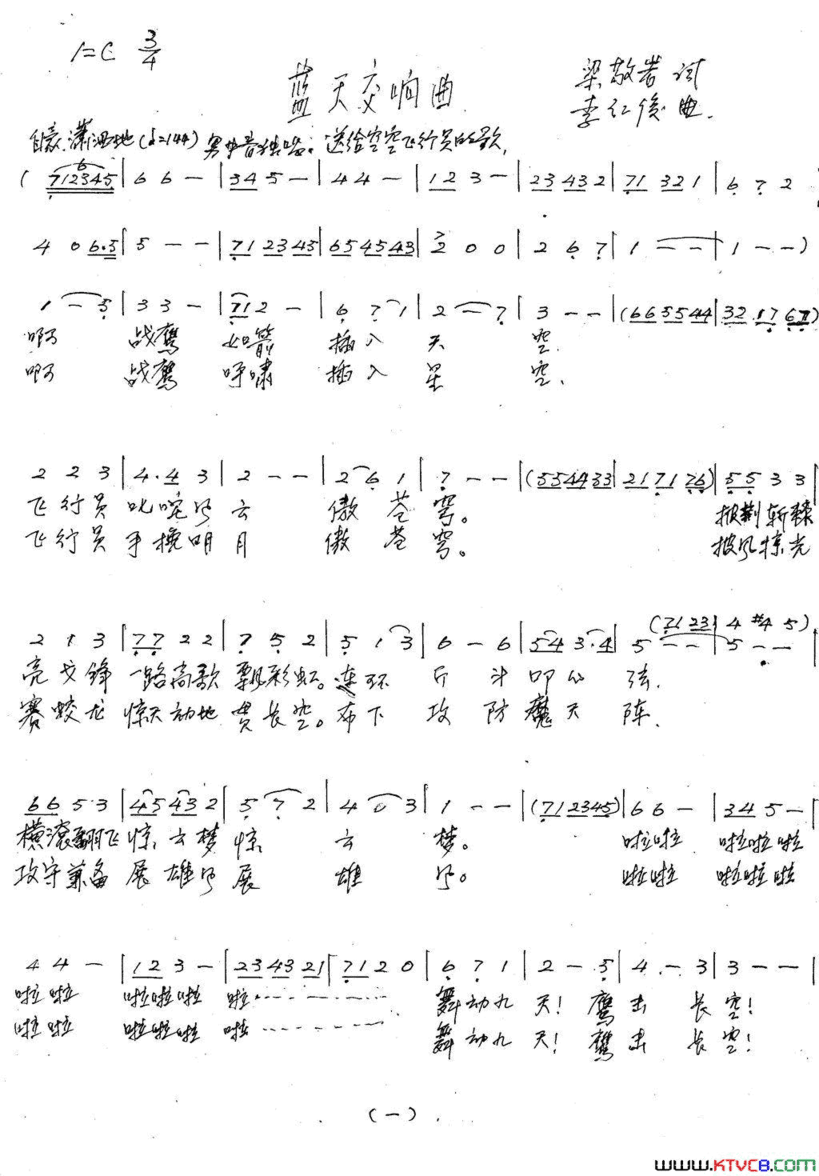 1=C 3/4
蓝天交响曲
梁敬岩 词
李红俊 曲.
自豪、潇洒地 (♩=144) 男中音独唱. 送给空空飞行员的歌.
( 712345 | 6 6 - | 34 5 - | 4 4 - | 12 3 - | 23 43 2 | 71 32 1 | 6 7 2
4 0 6.5 | 5 - - | 71 23 43 | 65 45 43 | 2 0 0 | 2 6 7 | 1 - - | 1 - - )
1 - 5 | 3 3 - | 71 2 - | 6 7 1 | 2 - 7 | 3 - - | (66 55 44 | 32 .1 7 67)
啊 战鹰 如箭 插入 天 空.
啊 战鹰 呼啸 插入 星 空.
2 2 3 | 4. 4 3 | 2 - - | 2 6 1 | 7 - - | (55 44 33 | 21 71 76) | 55 3 3 |
飞行员 叱咤风云 傲苍穹。 披荆斩棘
飞行员 手挽明月 傲苍穹。 披风掠光
(71 23 | 4 #4 5)
2 1 3 | 77 2 2 | 7 5 2 | 5 1 3 | 6 - 6 | 54 3.4 | 5 - - | 5 - - |
亮戈锋 一路高歌 飘彩虹。连环 斤斗叩心 弦.
赛蛟龙 惊天动地 贯长空。布下 攻防魔天 阵.
66 5 3 | 45 43 2 | 5 7 2 | 4 0 3 | 1 - - | (712345) | 6 6 - | 34 5 - |
横滚翻飞 惊云梦 惊 云 梦。 啦啦 啦啦啦
攻守兼备 展雄风 展 雄 风。 啦啦 啦啦啦
4 4 - | 12 3 - | 23 43 21 | 71 2 0 | 6 7 1 | 2 - 5 | 4 . - 3 | 3 - - |
啦啦 啦啦啦 啦………… 舞动九天! 鹰击 长空!
啦啦 啦啦啦 啦………… 舞动九天! 鹰击 长空!
(一)
www.KTVC8.com